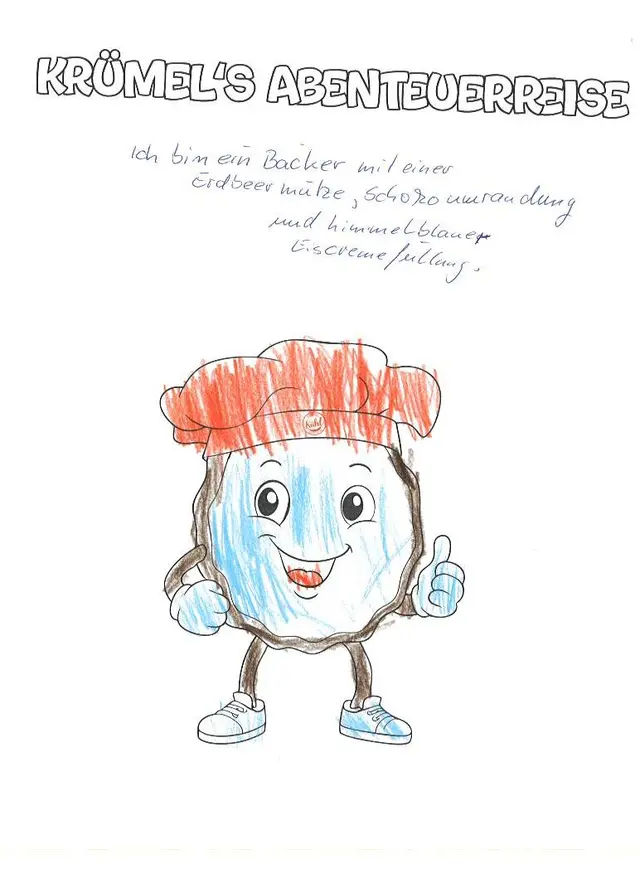 KRÜMEL'S ABENTEUERREISE
Ich bin ein Bäcker mit einer
Erdbeermütze, Schokoumrandung
und himmelblauer
Eiscremefüllung.